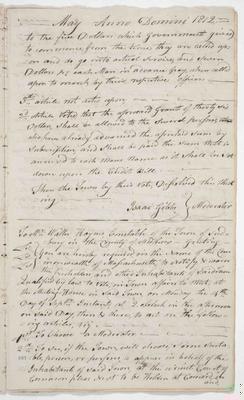 May Anno Domini 1812
to the five Dollars which Government gives
to commence from the time they are called up=
on and do go into actual Service and seven
Dollars to each man in advance when called
upon to march by their respective officers
5th article not acted upon
6 article Voted that the aforesaid Grant of thirty six
Dollars Shall be allowed to the Several persons who
have already advanced the aforesaid Sum by
Subscription and Shall be paid the Sum that is
annexed to each Mans Name as it Shall be set
down upon the
Then the Town by their vote Dissolved this Meet
ing
Isaac Gibbs } Moderator
To Mr Walter Haynes Constable of the Town of Sud=
bury in the County of Middlesex Greeting
You are hereby required in the Name of the Com
monwealth of Massachusetts to notify & warn
the freeholders and other Inhabitants of Said Town
Qualified by law to vote in Town affairs to Meet at
the Meeting House in Said Town on Monday the
Day of Septr Instant, at o clock in the afternoon
on Said Day then & there, to act on the follow=
ing articles, viz
1st To Choose a Moderator
2d To See if the Town will choose Some Suita
ble person, or persons to appear in behalf of the
Inhabitants of Said Town at the Court of
Common pleas next to be Holden at Concord in
and